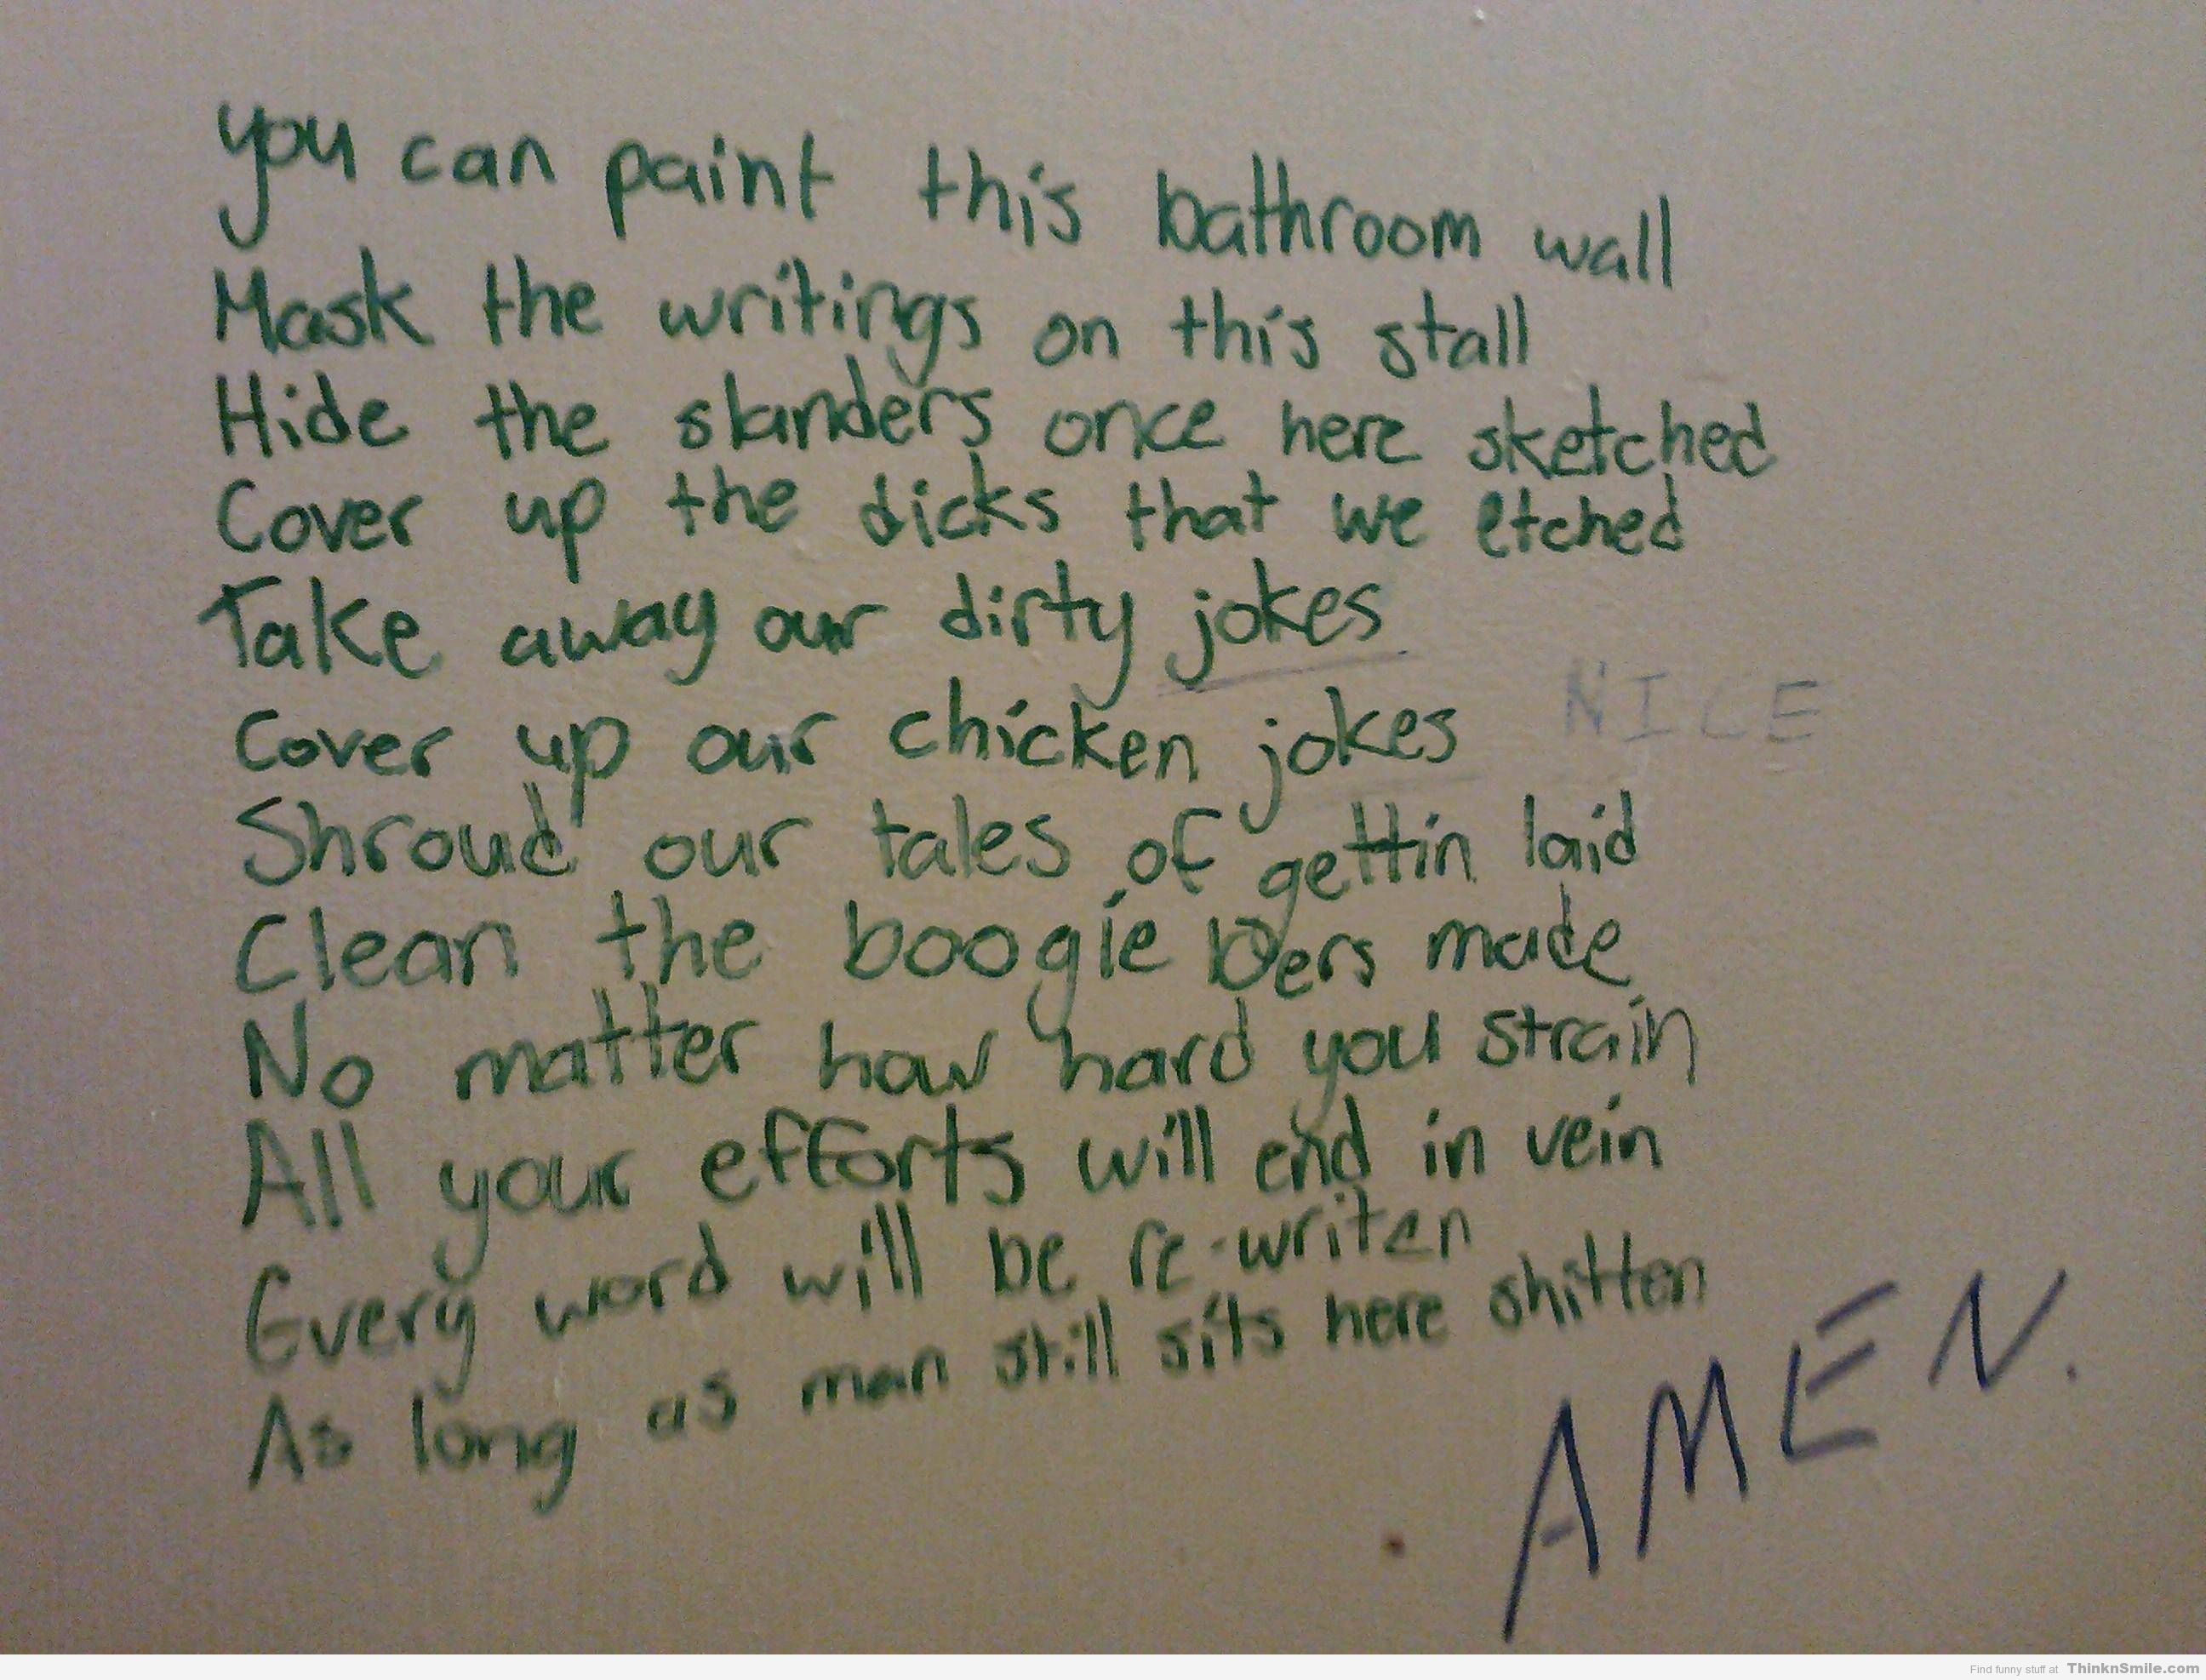 you can paint this bathroom wall
Mask the writings on this stall
Hide the slanders once here sketched
Cover up the dicks that we etched
Take away our dirty jokes
Cover up our chicken jokes
NICE
Shroud our tales of gettin laid
Clean the boogie made
No matter how hard you strain
All your efforts will end in vein
Every word will be re-writen
As long as man still sits here shitten
AMEN.
Find funny stuff at ThinknSmile.com